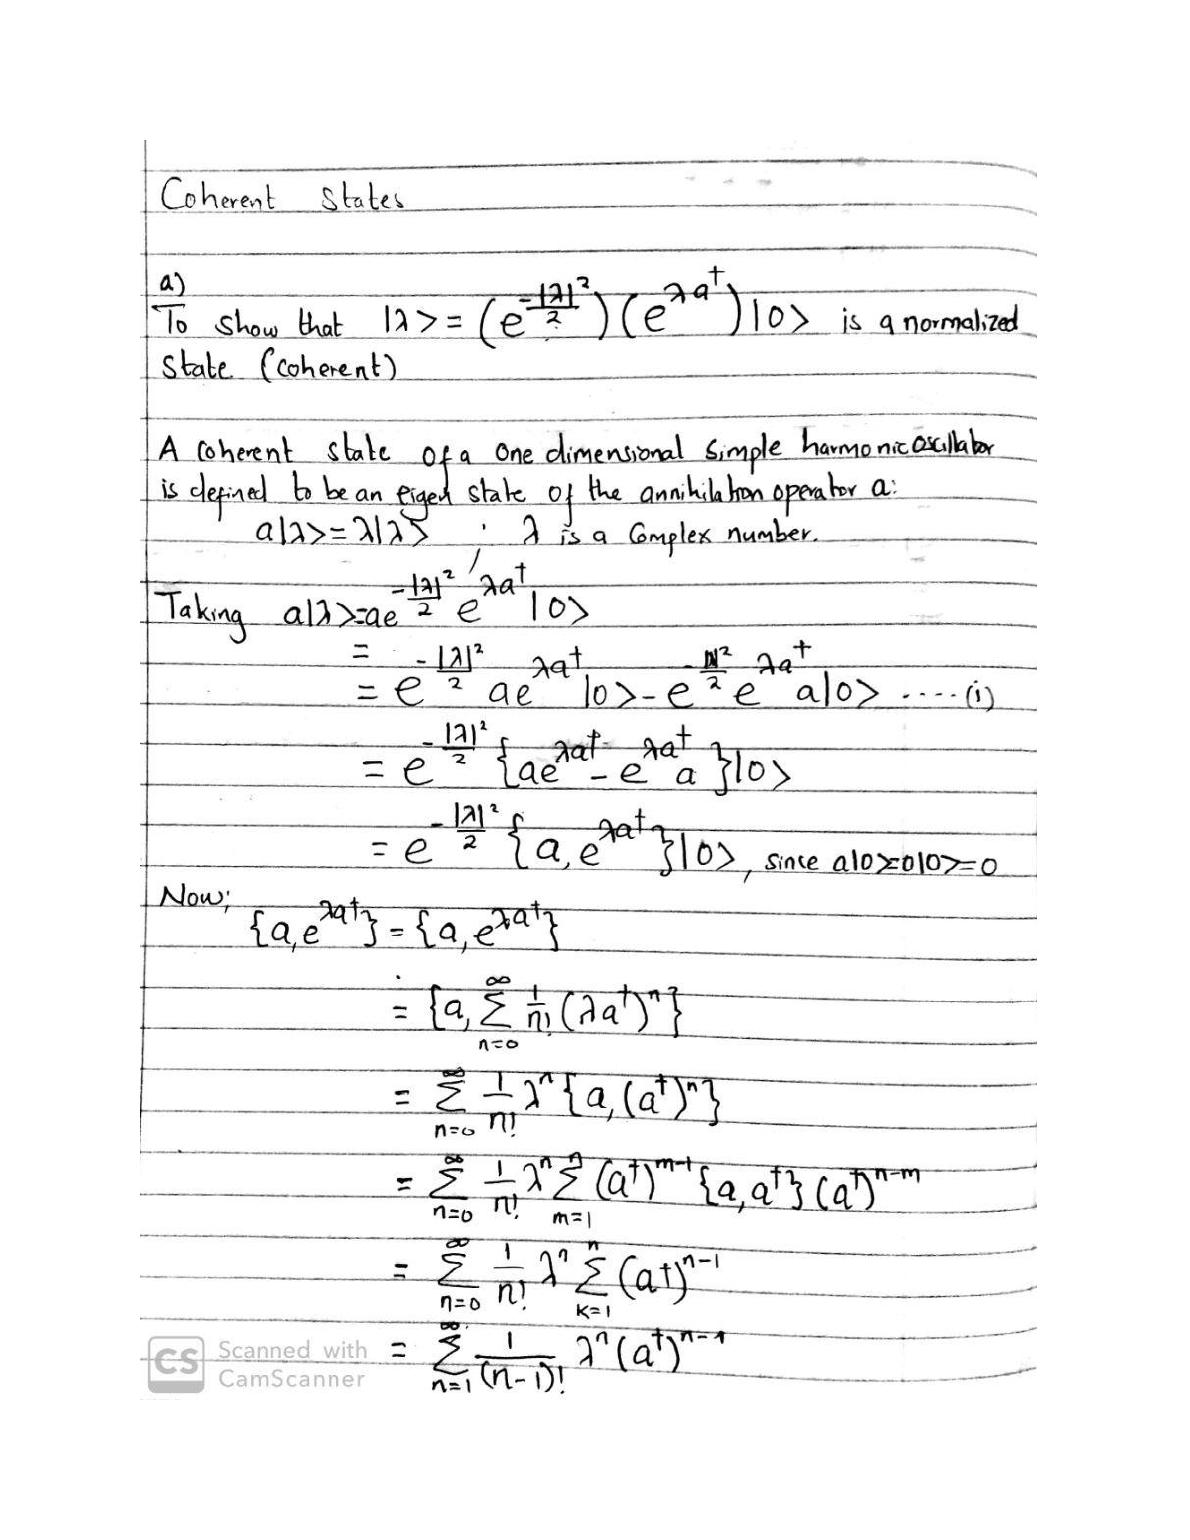 Coherent States
a)
To show that |λ> = (e^{-|λ|²/2})(e^{λa†})|0> is a normalized
state (coherent)
A coherent state of a one dimensional simple harmonic oscillator
is defined to be an eigen state of the annihilation operator a:
a|λ> = λ|λ> ; λ is a Complex number.
Taking a|λ> = ae^{-|λ|²/2} e^{λa†}|0>
=
= e^{-|λ|²/2} ae^{λa†}|0> - e^{-|λ|²/2} e^{λa†} a|0> .....(i)
= e^{-|λ|²/2} {ae^{λa†} - e^{λa†} a}|0>
= e^{-|λ|²/2} {a, e^{λa†}}|0>, since a|0>=0|0>=0
Now;
{a, e^{λa†}} = {a, e^{λa†}}
= {a, Σ_{n=0}^{∞} 1/n! (λa†)^n}
= Σ_{n=0}^{∞} 1/n! λ^n {a, (a†)^n}
= Σ_{n=0}^{∞} 1/n! λ^n Σ_{m=1}^{n} (a†)^{m-1} {a, a†} (a†)^{n-m}
= Σ_{n=0}^{∞} 1/n! λ^n Σ_{k=1}^{n} (a†)^{n-1}
= Σ_{n=1}^{∞} 1/(n-1)! λ^n (a†)^{n-1}
CS Scanned with
CamScanner